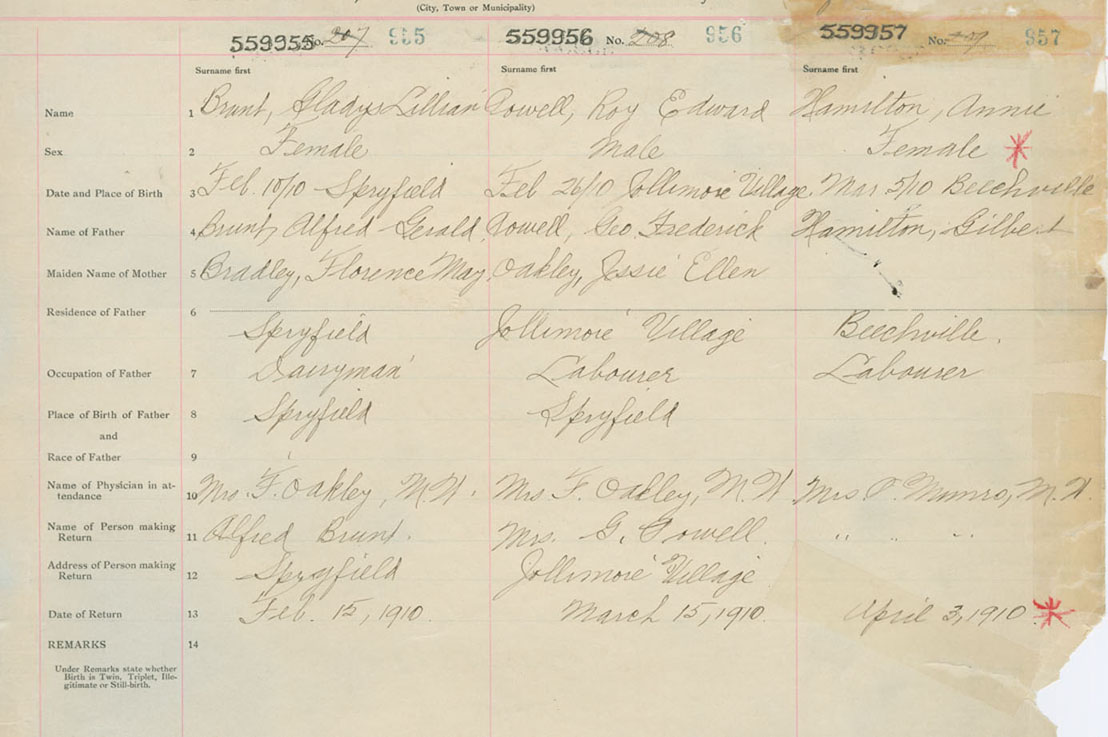 (City, Town or Municipality)
559955 No. 207 955 559956 No. 208 956 559957 No. 957
Surname first Surname first Surname first
Name 1 Brunt, Gladys Lillian Powell, Roy Edward Hamilton, Annie
Sex 2 Female Male Female
Date and Place of Birth 3 Feb. 10/10 Spryfield Feb 26/10 Jollimore Village Mar 5/10 Beechville
Name of Father 4 Brunt, Alfred Gerald Powell, Geo. Frederick Hamilton, Gilbert
Maiden Name of Mother 5 Bradley, Florence May Oakley, Jessie Ellen
Residence of Father 6 Spryfield Jollimore Village Beechville.
Occupation of Father 7 Dairyman Labourer Labourer
Place of Birth of Father 8 Spryfield Spryfield
and
Race of Father 9
Name of Physician in at-
tendance 10 Mrs. F. Oakley, M.W. Mrs F. Oakley, M.W. Mrs P. Munro, M.W.
Name of Person making
Return 11 Alfred Brunt. Mrs. G. Powell. " " "
Address of Person making
Return 12 Spryfield Jollimore Village
Date of Return 13 Feb. 15, 1910. March 15, 1910. April 3, 1910
REMARKS 14
Under Remarks state whether
Birth is Twin, Triplet, Ille-
gitimate or Still-birth.